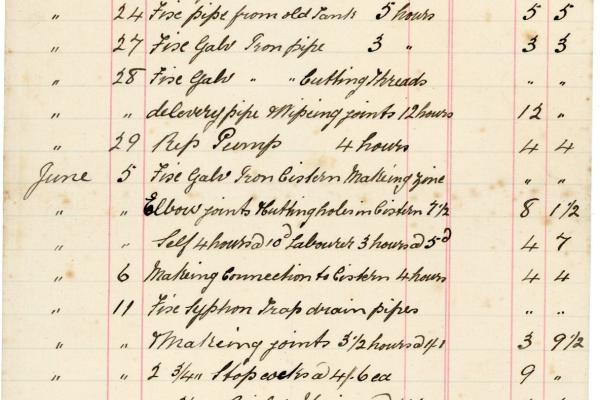 " 24 Fixe pipe from old Tank 5 hours 5 5
" 27 Fixe Galv Iron pipe 3 " 3 3
" 28 Fixe Galv " " Cutting Threads " "
" " delevery pipe & Wipeing joints 12 hours 12 "
" 29 Rep Pump 4 hours 4 4
June 5 Fixe Galv Iron Cistern Making zinc " "
" " Elbow joints & Cutting holes in Cistern 7 1/2 8 1 1/2
" " Self 4 hours @ 10d Labourer 3 hours @ 5d 4 7
" 6 Making Connection to Cistern 4 hours 4 4
" 11 Fixe Syphon Trap drain pipes " "
" " & Making joints 3 1/2 hours @ 1/1 3 9 1/2
" " 2 3/4" Stop cocks @ 4/6 ea 9 "